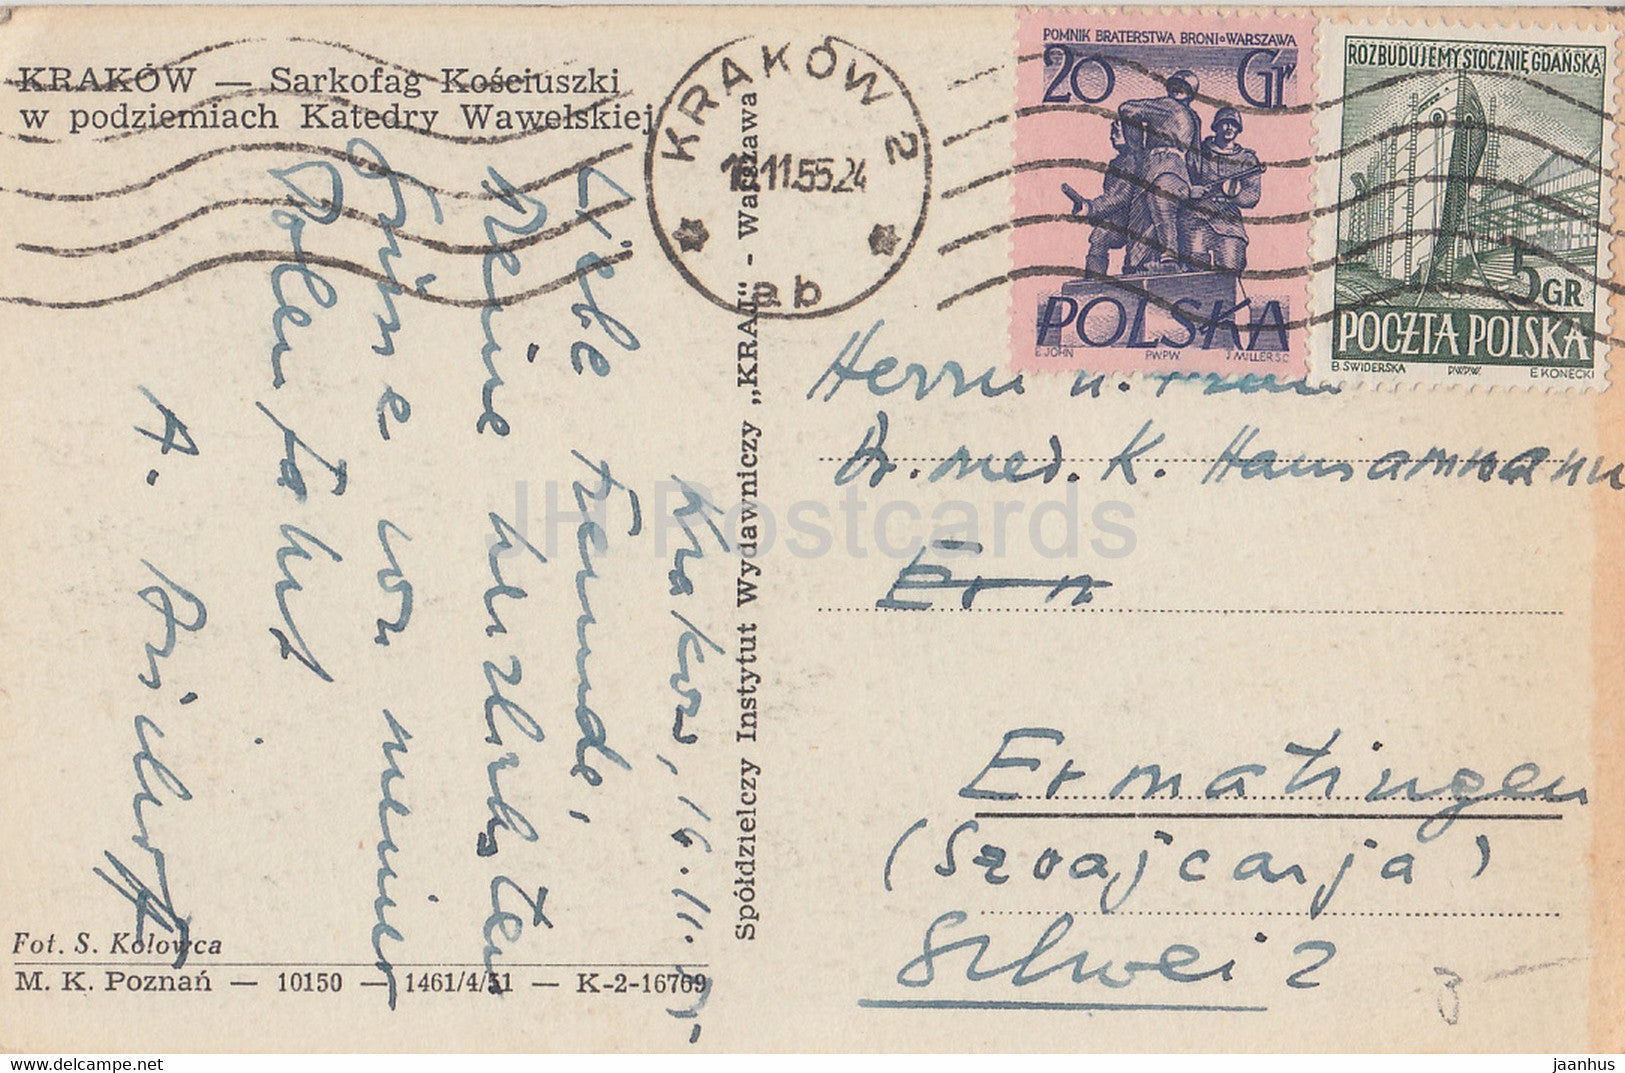 KRAKÓW — Sarkofag Kościuszki
w podziemiach Katedry Wawelskiej
KRAKÓW 2
11.55.24
a b
POMNIK BRATERSTWA BRONI • WARSZAWA
20 Gr
POLSKA
E. JOHN PWPW J. MILLER SC.
ROZBUDUJEMY STOCZNIĘ GDAŃSKĄ
5 GR
POCZTA POLSKA
B. SWIDERSKA PWPW. E. KONECKI
Krakow, 16.11.
Liebe Freunde,
Meine herzlichsten
Grüsse von meiner
Polenfahrt
A.
Spółdzielczy Instytut Wydawniczy „KRAJ" - Warszawa
Herrn u. Frau
Dr. med. K. Hausammann
Ermatingen
(Szwajcarja)
Schweiz
Fot. S. Kolowca
M. K. Poznań — 10150 — 1461/4/51 — K-2-16769
JH Postcards
www.hippostcard.com
jaanhus